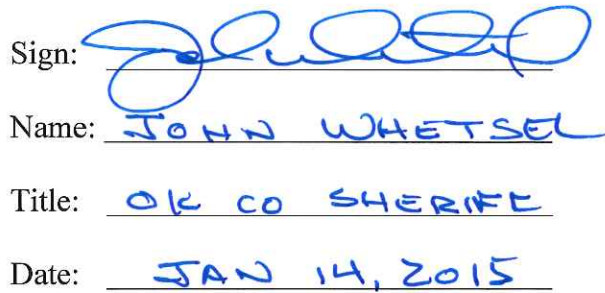 Sign:
Name: JOHN WHETSEL
Title: OK CO SHERIFF
Date: JAN 14, 2015